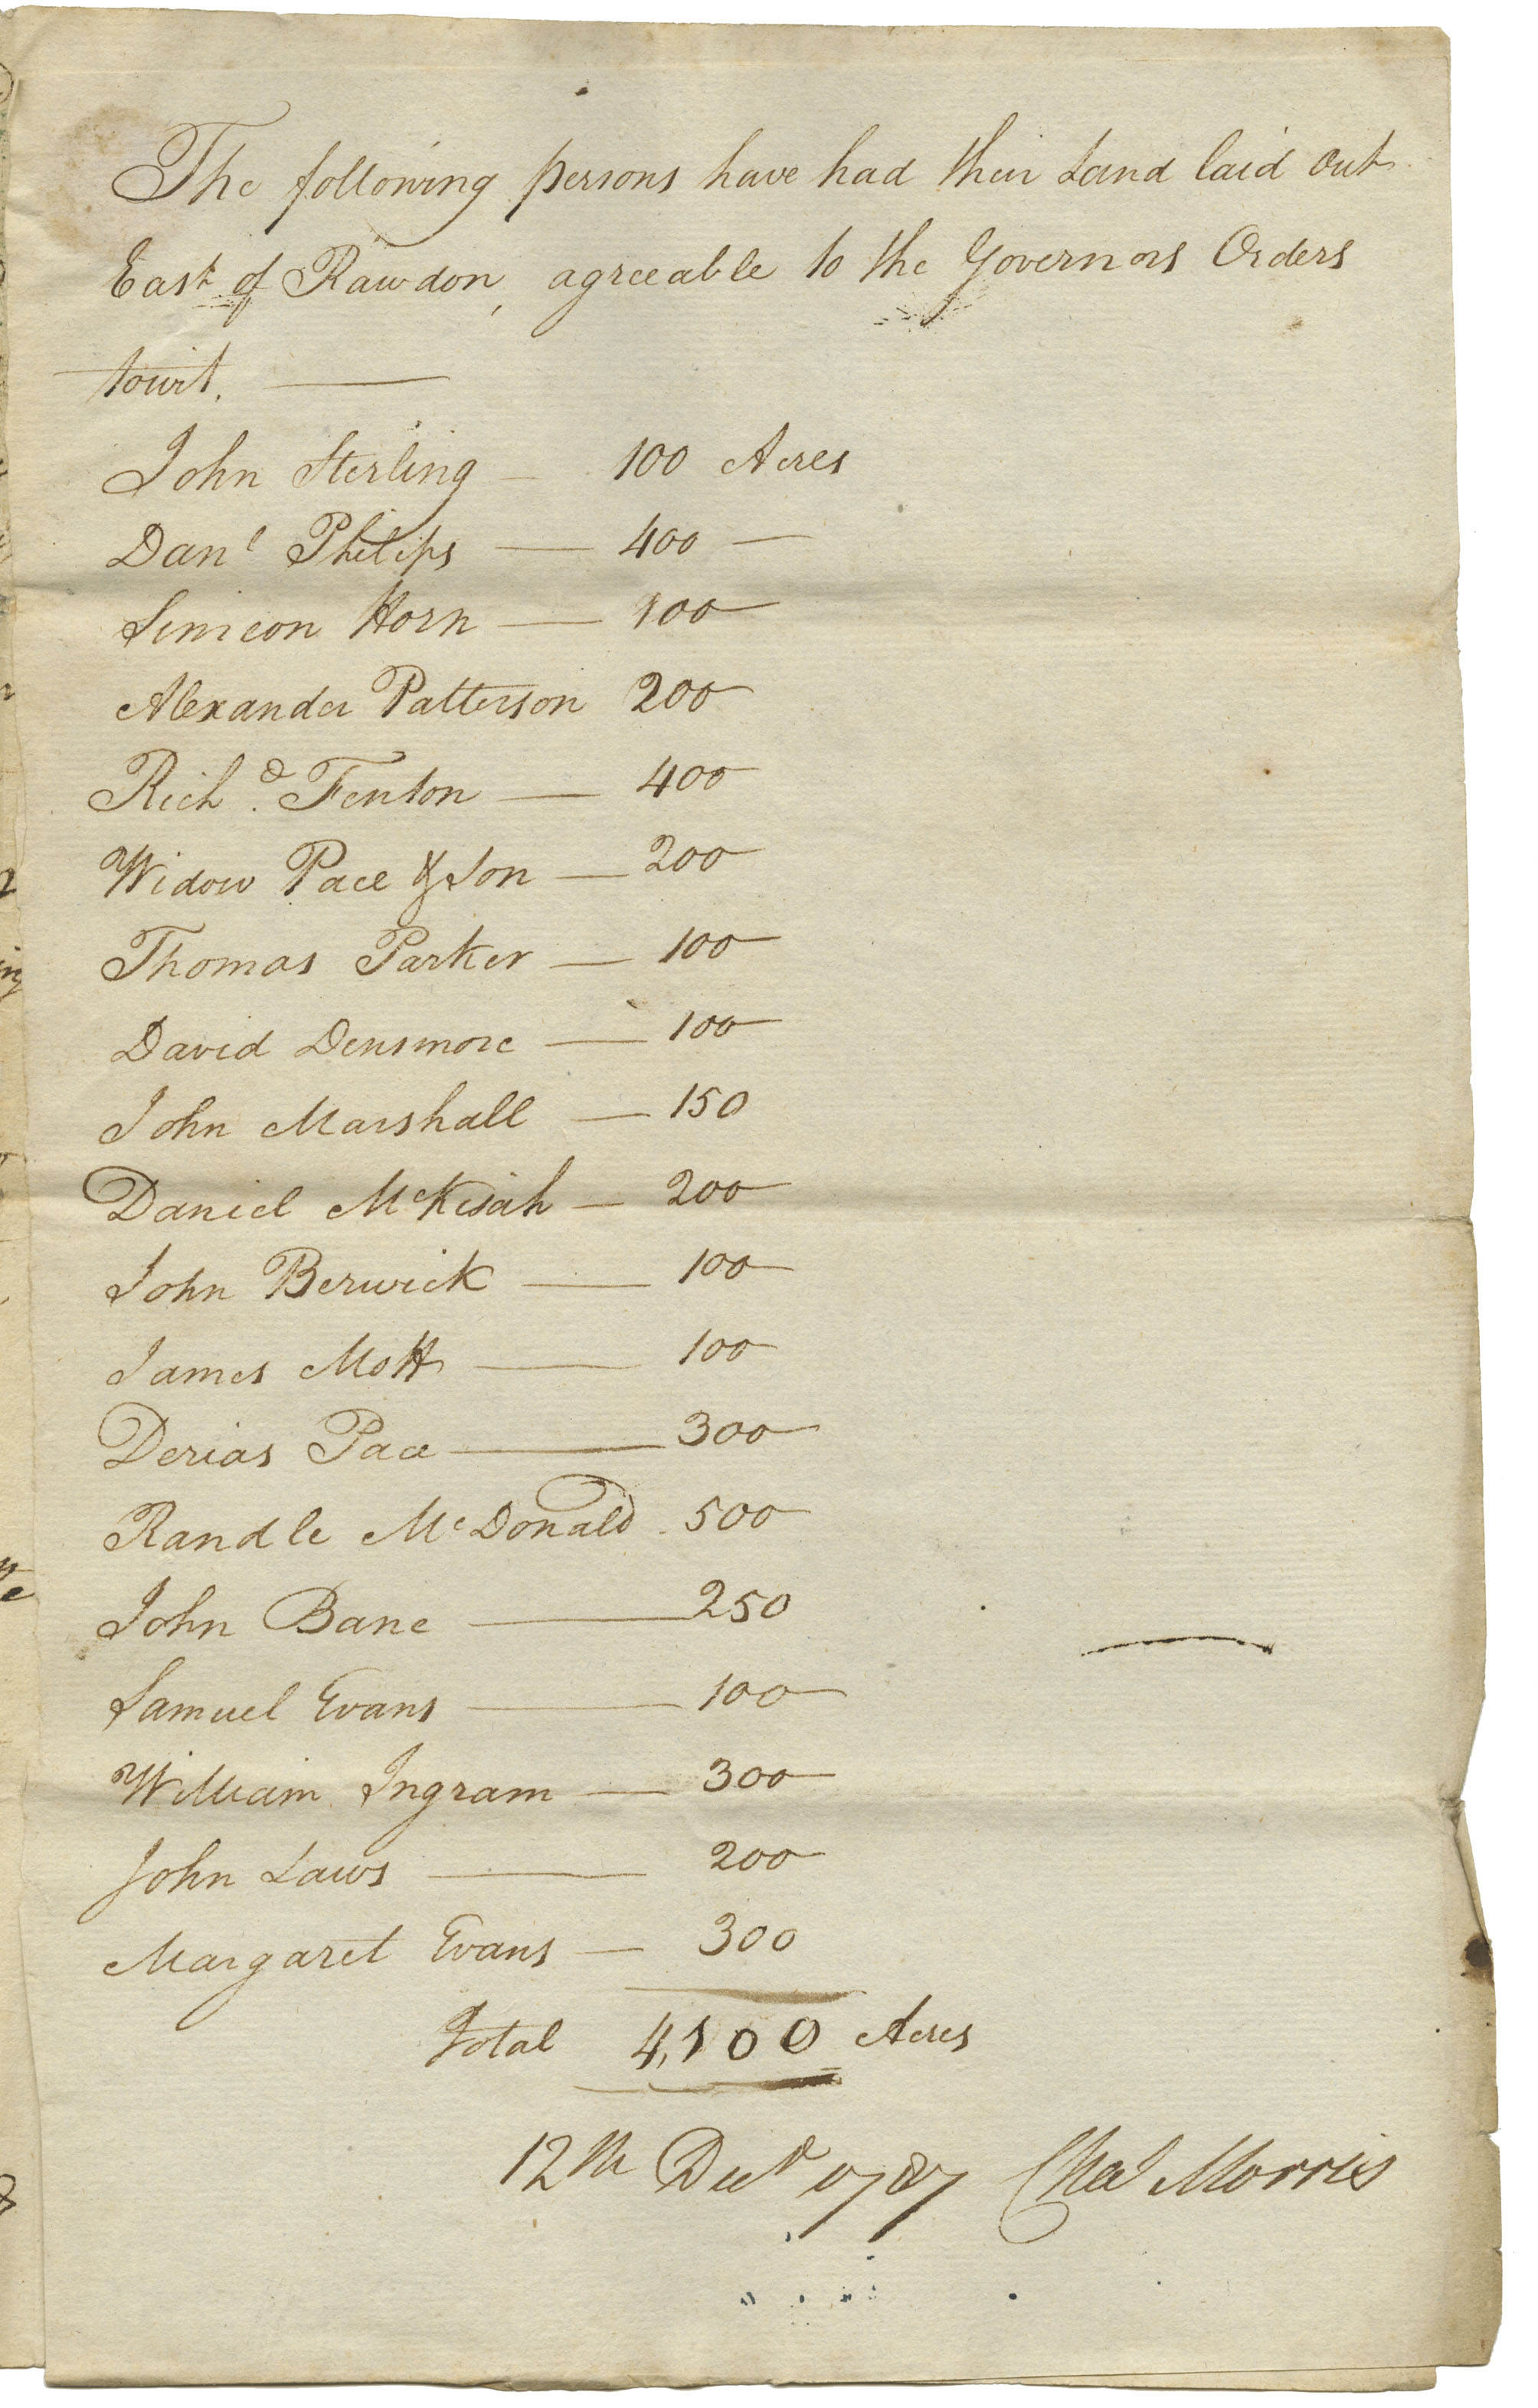 The following persons have had their Land laid out
East of Rawdon, agreeable to the Governors Orders
towit. —
John Sterling — 100 Acres
Danl Philips — 400 —
Simeon Horn — 100
Alexander Patterson 200
Richd. Fenton — 400
Widow Pace & Son — 200
Thomas Parker — 100
David Densmore — 100
John Marshall — 150
Daniel McKisah — 200
John Berwick — 100
James Mott — 100
Derias Pace — 300
Randle McDonald - 500
John Bane — 250
Samuel Evans — 100
William Ingram — 300
John Laws — 200
Margaret Evans — 300
Total 4,100 Acres
12th Decr 1787 Chas Morris